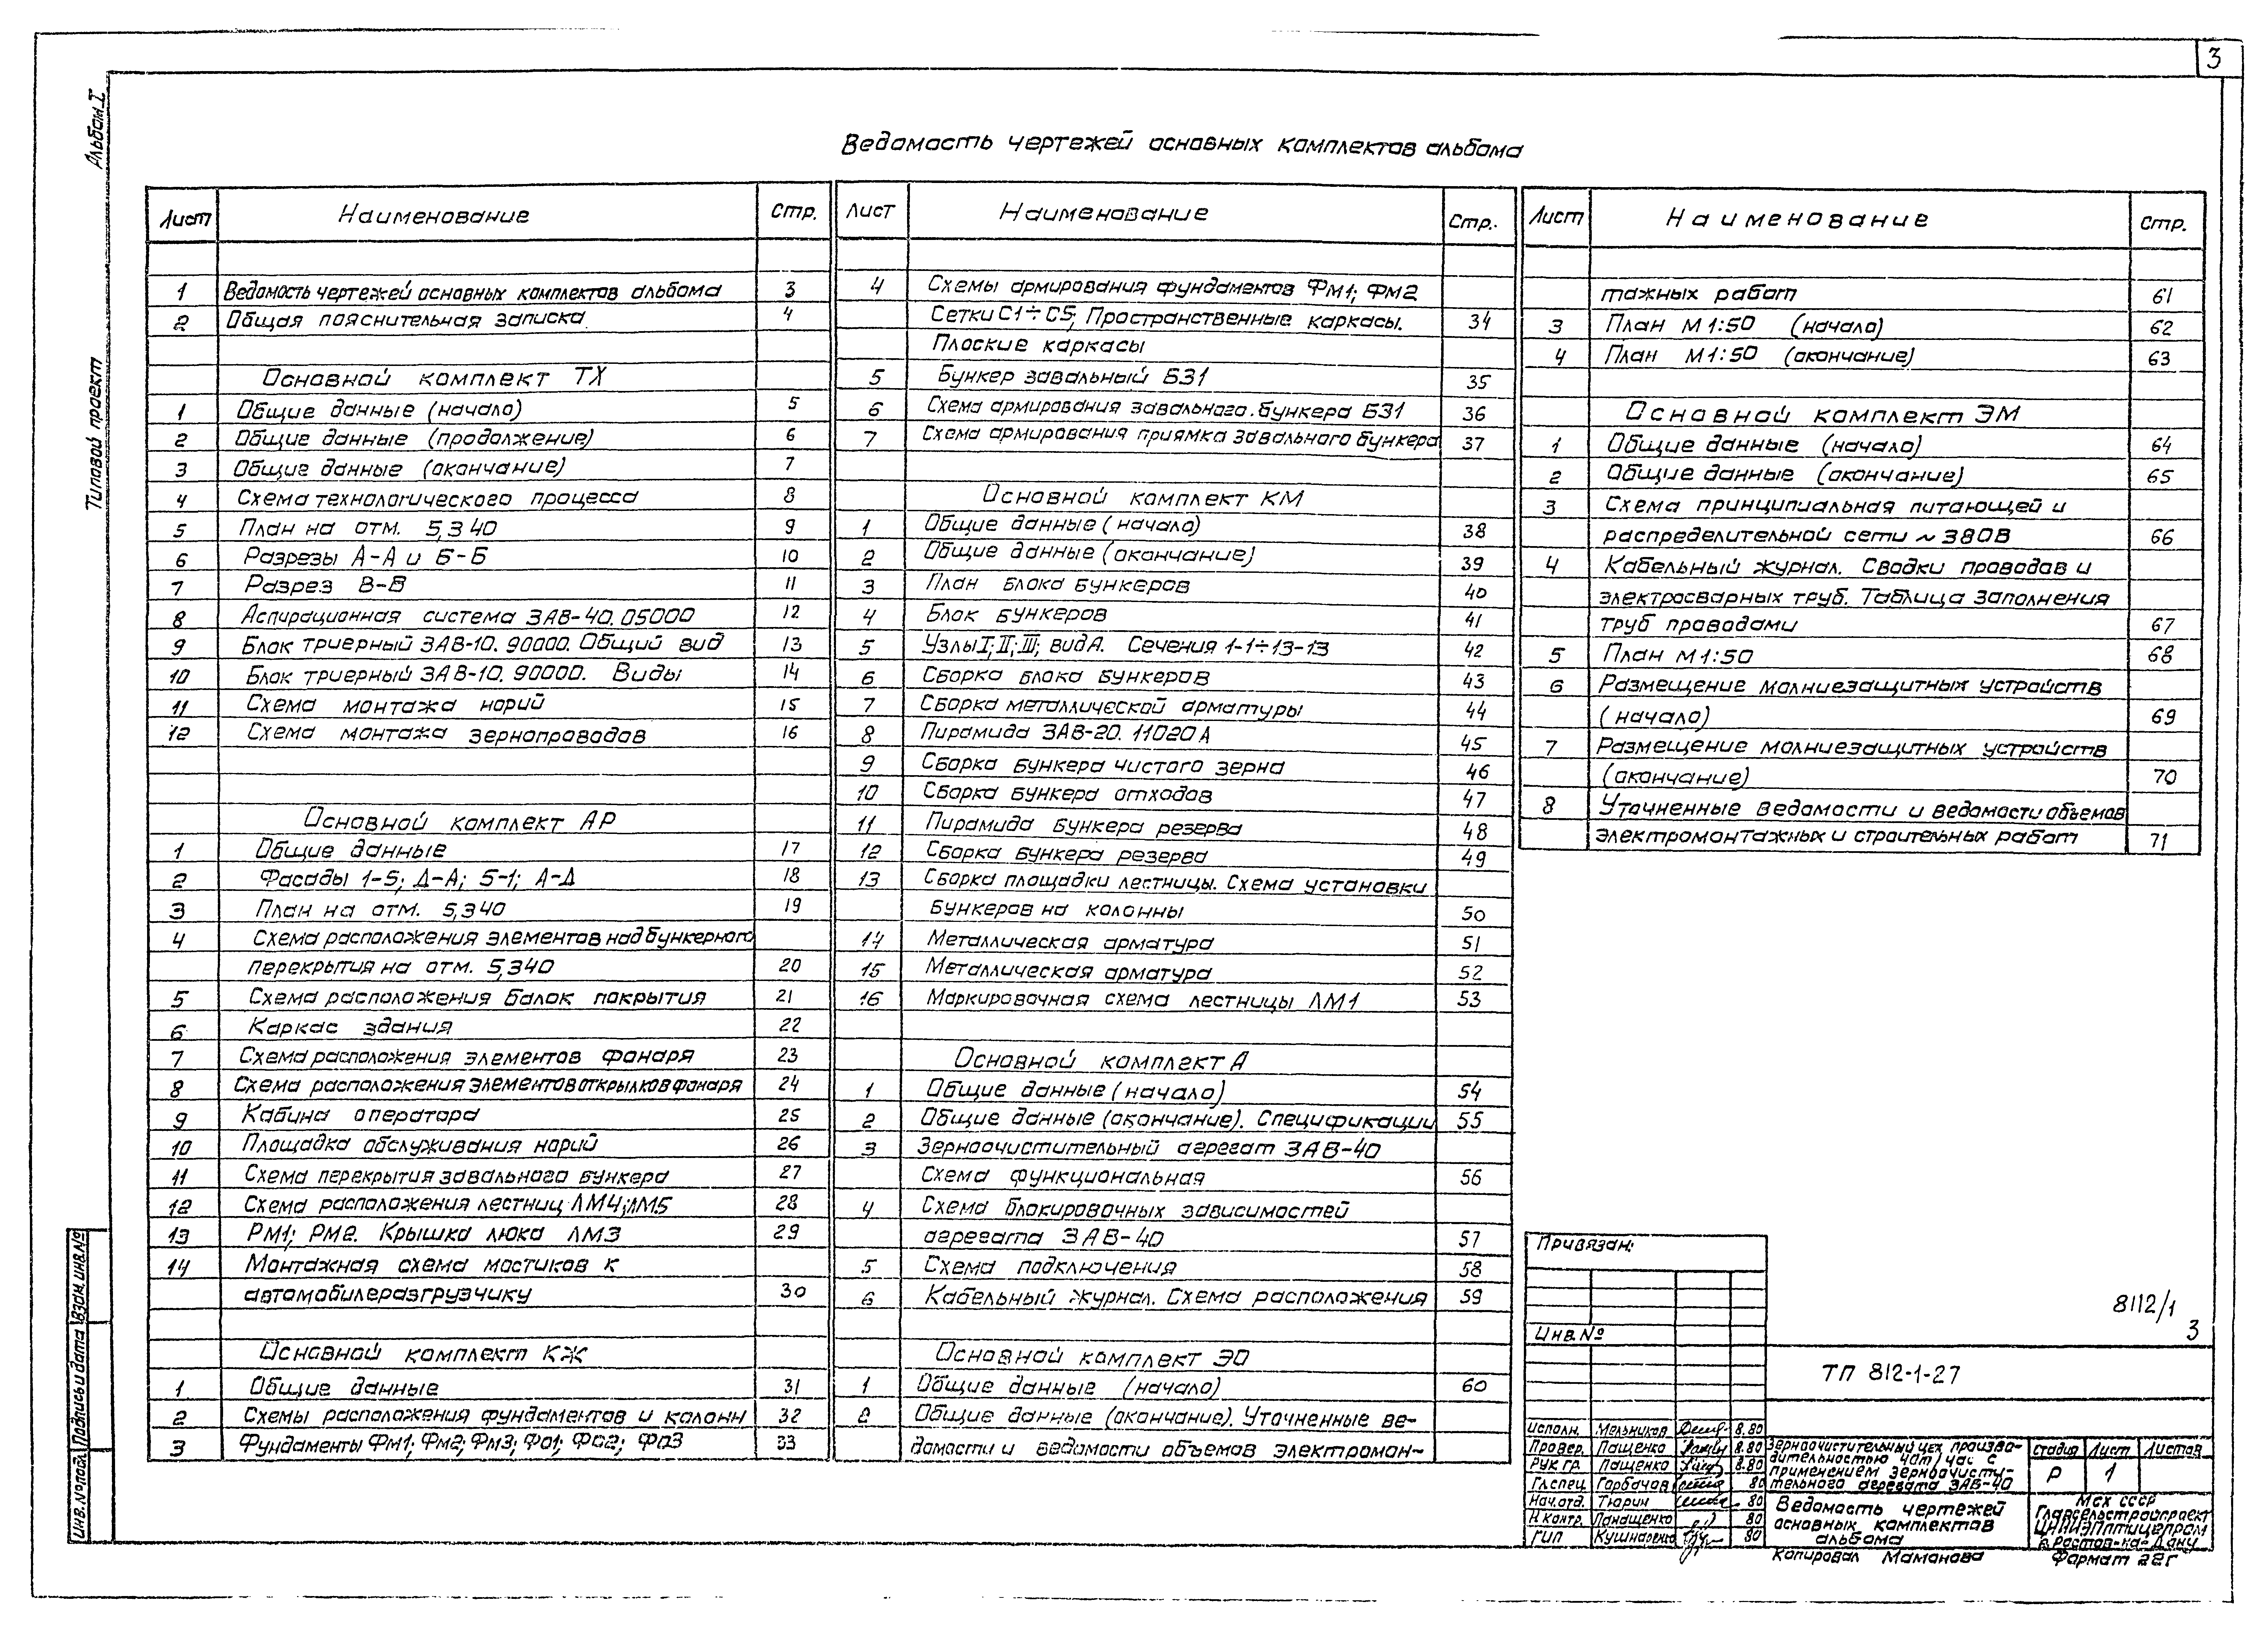 3
Альбом I
Типовой проект
Ведомость чертежей основных комплектов альбома
Лист Наименование Стр.
1 Ведомость чертежей основных комплектов альбома 3
2 Общая пояснительная записка 4
Основной комплект ТХ
1 Общие данные (начало) 5
2 Общие данные (продолжение) 6
3 Общие данные (окончание) 7
4 Схема технологического процесса 8
5 План на отм. 5,340 9
6 Разрезы А-А и Б-Б 10
7 Разрез В-В 11
8 Аспирационная система ЗАВ-40.05000 12
9 Блок триерный ЗАВ-10.90000. Общий вид 13
10 Блок триерный ЗАВ-10.90000. Виды 14
11 Схема монтажа норий 15
12 Схема монтажа зернопроводов 16
Основной комплект АР
1 Общие данные 17
2 Фасады 1-5; Д-А; 5-1; А-Д 18
3 План на отм. 5,340 19
4 Схема расположения элементов надбункерного
перекрытия на отм. 5,340 20
5 Схема расположения балок покрытия 21
6 Каркас здания 22
7 Схема расположения элементов фонаря 23
8 Схема расположения элементов открылков фонаря 24
9 Кабина оператора 25
10 Площадка обслуживания норий 26
11 Схема перекрытия завального бункера 27
12 Схема расположения лестниц ЛМ4; ЛМ5 28
13 РМ1; РМ2. Крышка люка ЛМ3 29
14 Монтажная схема мостиков к
автомобилеразгрузчику 30
Основной комплект КЖ
1 Общие данные 31
2 Схемы расположения фундаментов и колонн 32
3 Фундаменты Фм1; Фм2; Фм3; Фо1; Фо2; Фо3 33
Лист Наименование Стр.
4 Схемы армирования фундаментов Фм1; Фм2
Сетки С1÷С5; Пространственные каркасы. 34
Плоские каркасы
5 Бункер завальный БЗ1 35
6 Схема армирования завального бункера БЗ1 36
7 Схема армирования приямка завального бункера 37
Основной комплект КМ
1 Общие данные (начало) 38
2 Общие данные (окончание) 39
3 План блока бункеров 40
4 Блок бункеров 41
5 Узлы I; II; III; вид А. Сечения 1-1÷13-13 42
6 Сборка блока бункеров 43
7 Сборка металлической арматуры 44
8 Пирамида ЗАВ-20.11020А 45
9 Сборка бункера чистого зерна 46
10 Сборка бункера отходов 47
11 Пирамида бункера резерва 48
12 Сборка бункера резерва 49
13 Сборка площадки лестницы. Схема установки
бункеров на колонны 50
14 Металлическая арматура 51
15 Металлическая арматура 52
16 Маркировочная схема лестницы ЛМ1 53
Основной комплект А
1 Общие данные (начало) 54
2 Общие данные (окончание). Спецификации 55
3 Зерноочистительный агрегат ЗАВ-40
Схема функциональная 56
4 Схема блокировочных зависимостей
агрегата ЗАВ-40 57
5 Схема подключения 58
6 Кабельный журнал. Схема расположения 59
Основной комплект ЭО
1 Общие данные (начало) 60
2 Общие данные (окончание). Уточненные ве-
домости и ведомости объемов электромон-
Лист Наименование Стр.
тажных работ 61
3 План М1:50 (начало) 62
4 План М1:50 (окончание) 63
Основной комплект ЭМ
1 Общие данные (начало) 64
2 Общие данные (окончание) 65
3 Схема принципиальная питающей и
распределительной сети ~380В 66
4 Кабельный журнал. Сводки проводов и
электросварных труб. Таблица заполнения
труб проводами 67
5 План М1:50 68
6 Размещение молниезащитных устройств
(начало) 69
7 Размещение молниезащитных устройств
(окончание) 70
8 Уточненные ведомости и ведомости объемов
электромонтажных и строительных работ 71
Привязан:
Инв.№
8112/1
3
ТП 812-1-27
Исполн. Мельников 8.80
Провер. Пащенко 8.80
Рук.гр. Пащенко 8.80
Гл.спец. Горбачов 80
Нач.отд. Тюрин 80
Н.контр. Панащенко 80
ГИП Кушнаренко 80
Зерноочистительный цех произво-
дительностью 40т/час с
применением зерноочисти-
тельного агрегата ЗАВ-40
Стадия Лист Листов
Р 1
Ведомость чертежей
основных комплектов
альбома
МСХ СССР
Главсельстройпроект
ЦНИИЭПптицепром
г. Ростов-на-Дону
Копировал Маманова Формат 22г
Инв.№подл. Подпись и дата Взам.инв.№